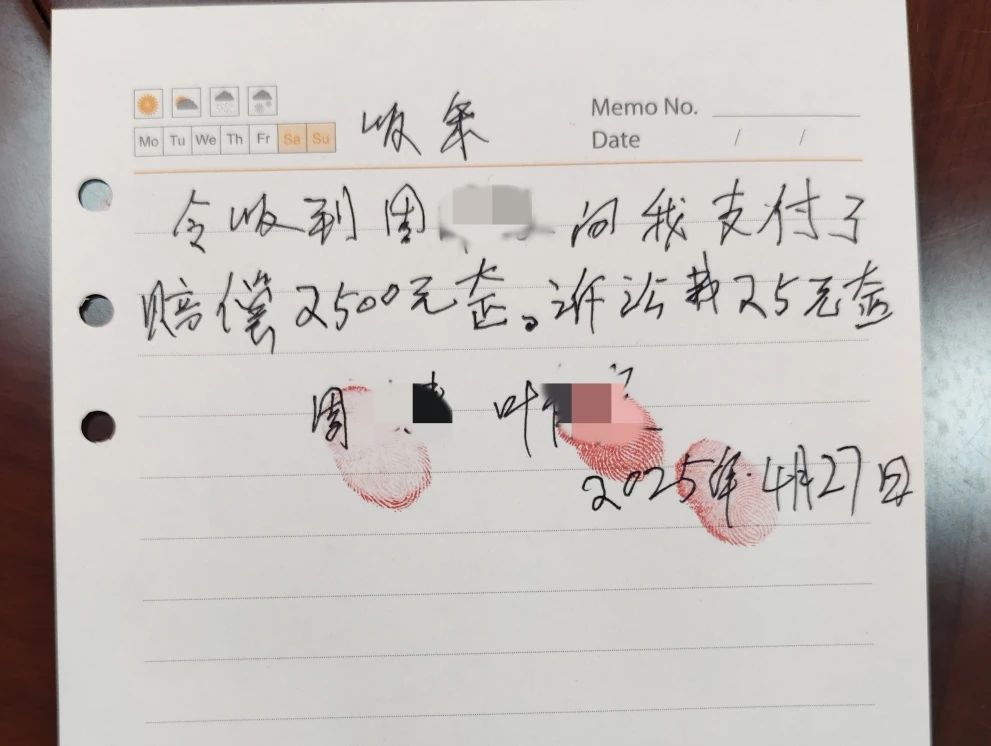 Memo No.
Mo Tu We Th Fr Sa Su
Date / /
收条
今收到周 向我支付了
赔偿2500元正。诉讼裁25元正
周 叶
2025年4月27日